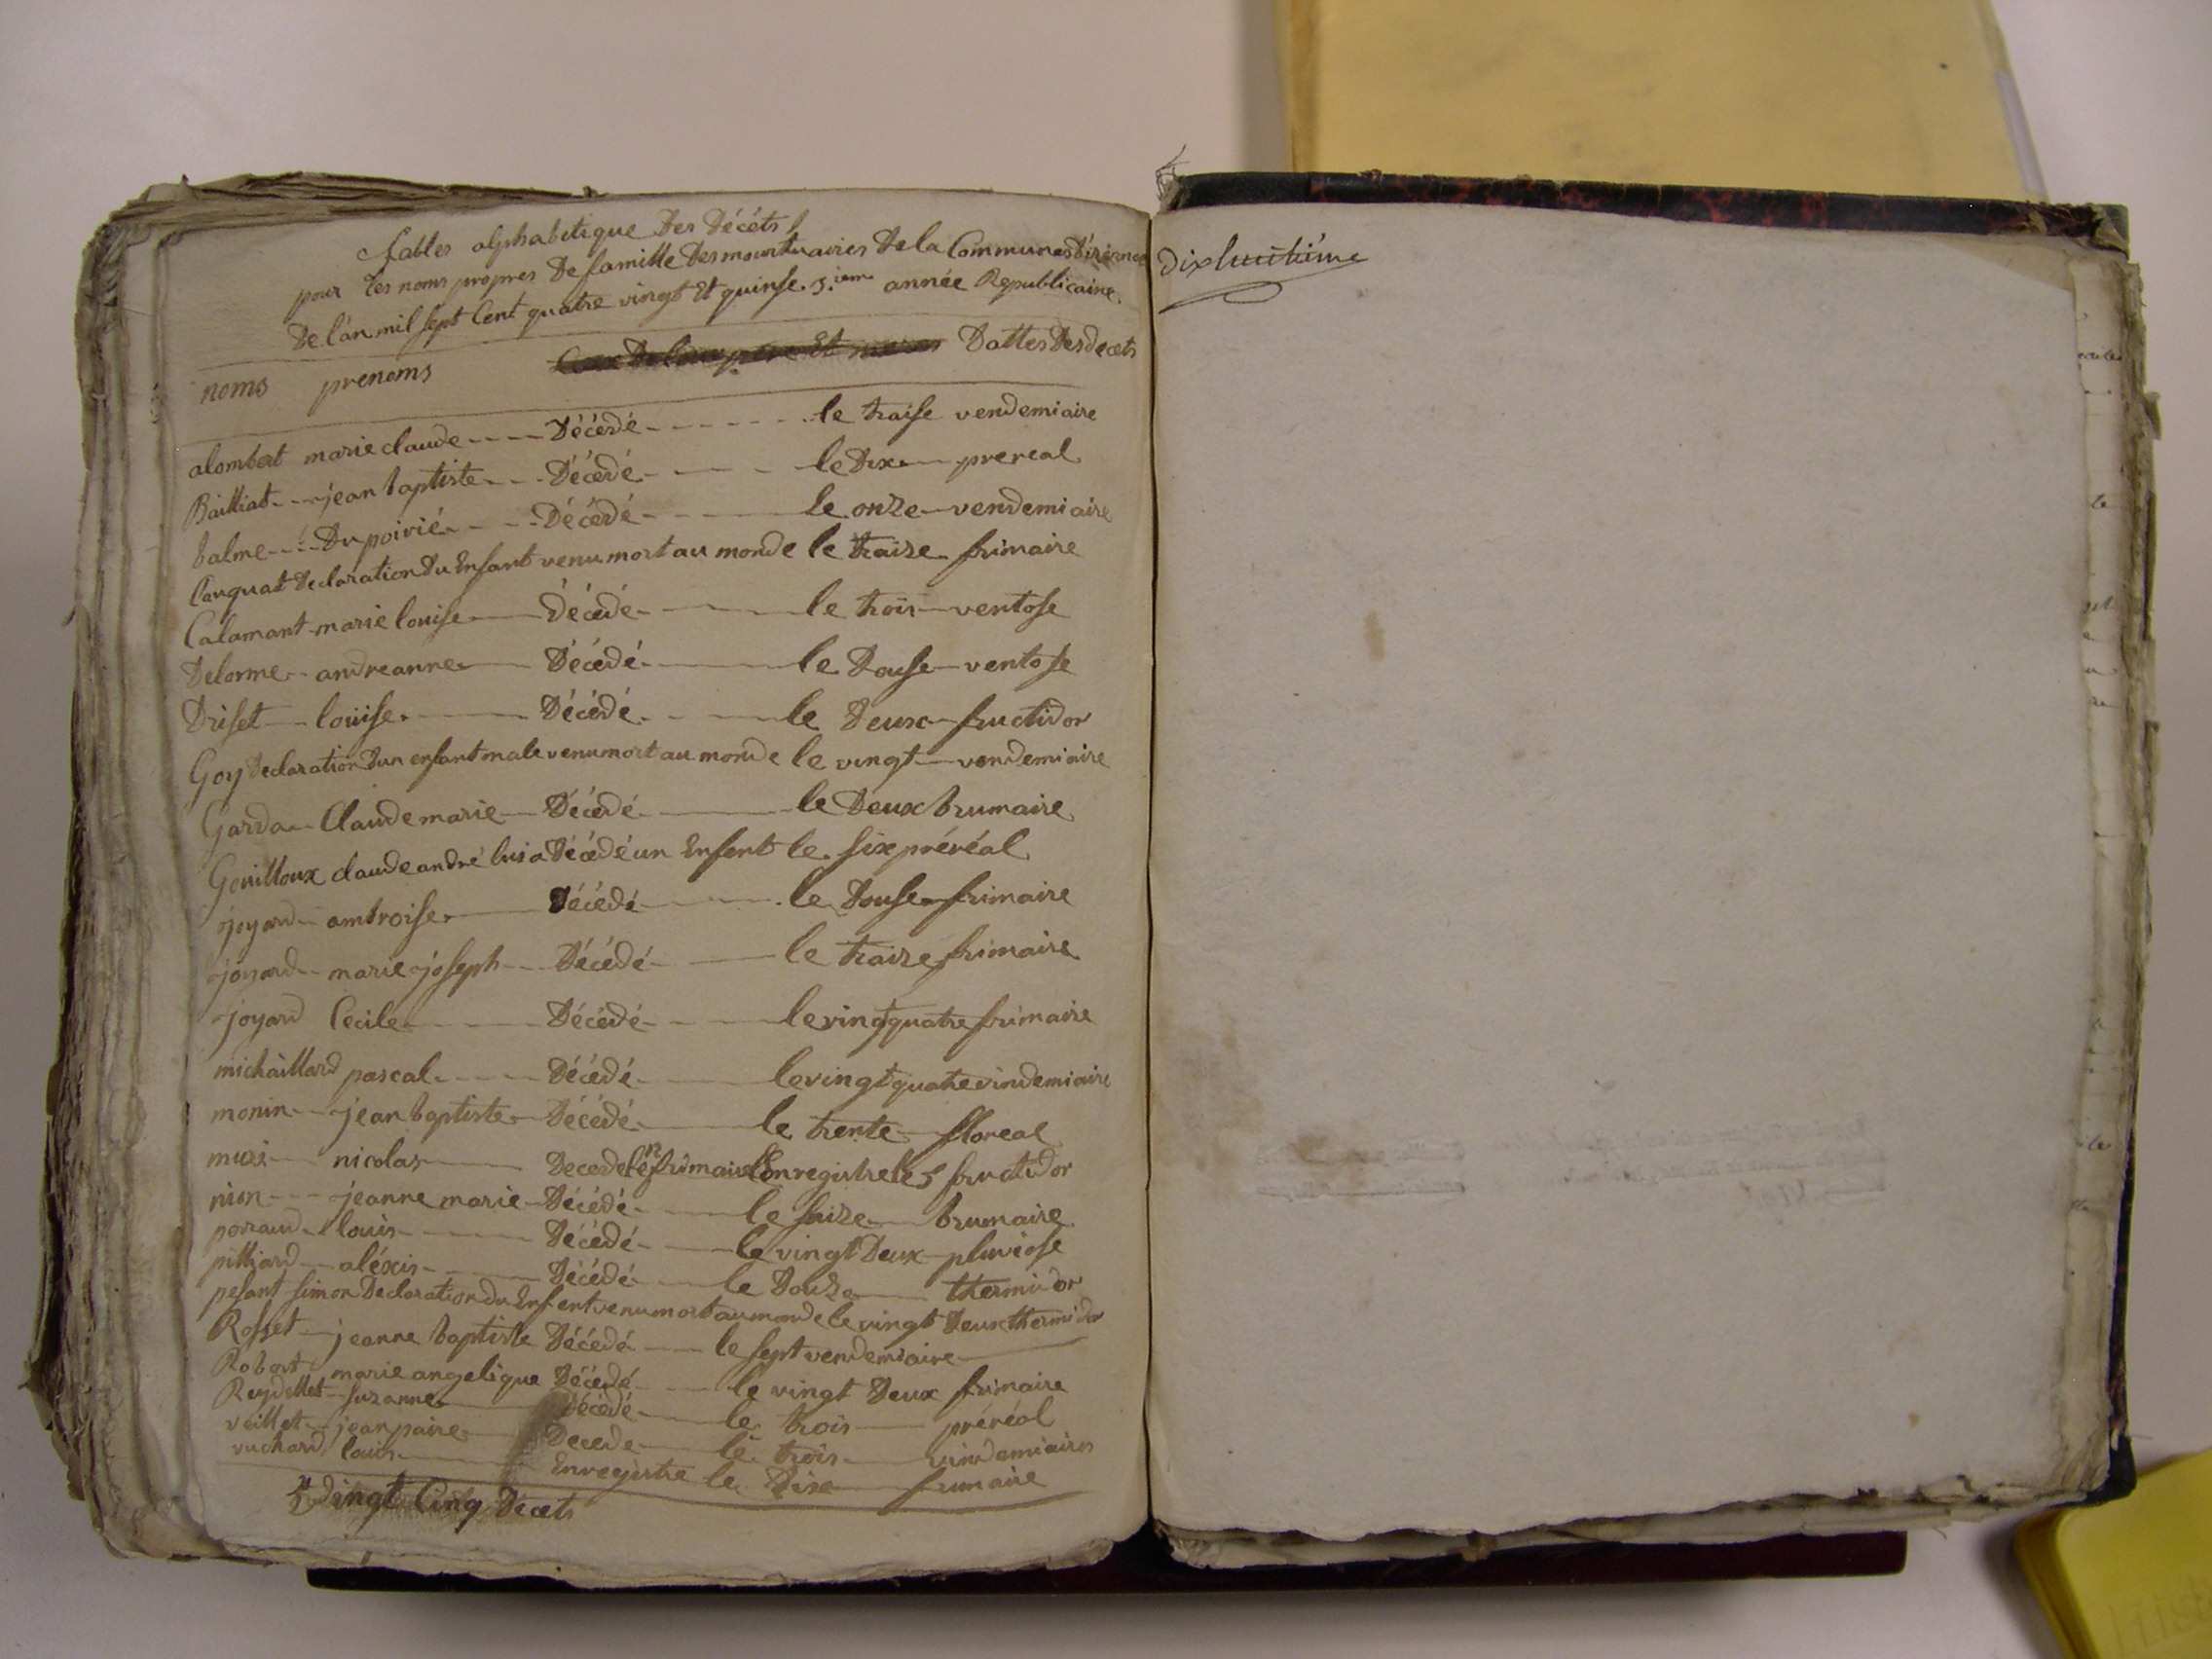 tables alphabetique Des Décéts
pour Les noms propres De famille Des mourtuaires De la Commune
De l'an mil sept Cent quatre vingt Et quinse. 3.ieme année Republicaine.
noms prenoms Dattes Des decets
alombert marie claude Décédé le traise vendemiaire
Bailliat jean baptiste Décédé le Dix prereal
balme Dupoivié Décédé Le onze vendemiaire
Declaration Du Enfant venu mort au monde le traize frimaire
Calamant marie louise Décédé le trois ventose
Delorme andreanne Décédé le Douse ventose
Driset loüise Décédé le Deux fructidor
Goy Declaration Dun enfant male venu mort au monde le vingt vendemiaire
Garda Claude marie Décédé le Deux brumaire
Gouilloux claude andré lui a Décédé un Enfent le six préréal
joyard ambroise Décédé le Douse frimaire
joyard marie joseph Décédé le traize frimaire
joyard Cecile Décédé le vingt quatre frimaire
michaillard pascal Décédé le vingt quatre vindemiaire
monin jean baptiste Décédé le trente floreal
nicolas Decede le 12 frimaire Enregistre le 5 fructidor
nion jeanne marie Décédé le saize brumaire
porraud louis Décédé le vingt Deux pluviose
pilliard aléxis Décédé le Douze thermidor
pesant simon Declaration Du Enfent venu mort au monde le vingt Deux thermidor
Rosset jeanne baptiste Décédé le sept vendemiaire
Robert marie angelique Décédé le vingt Deux frimaire
Reydellet suzanne Décédé le trois préréal
veillet jean paire Decede le trois vindemiaires
vuchard louis Enregistre le Dixe frimaire
vingt Cinq Décets
Dixhuitième